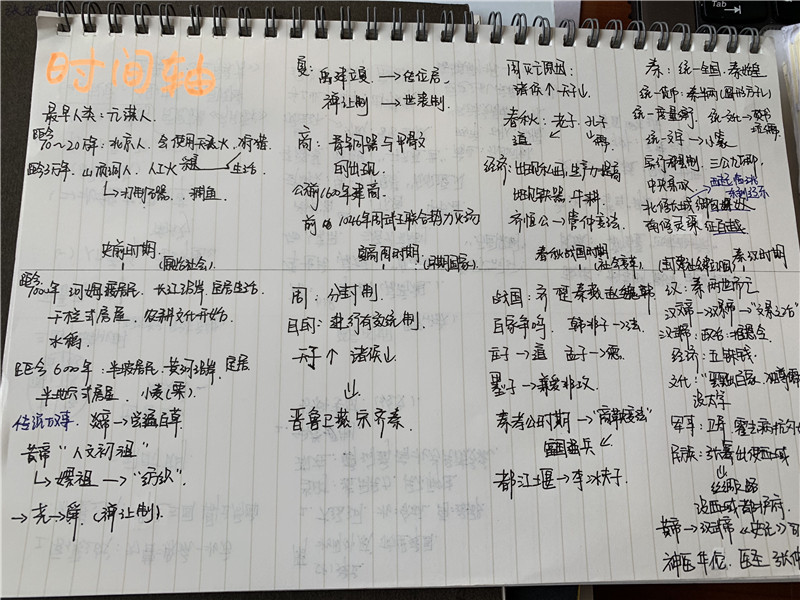 时间轴
最早人类：元谋人.
距今
70～20万年：北京人. 会使用天然火，狩猎
距今3万年. 山顶洞人. 人工火 生活
打制石器、捕鱼
史前时期
(原始社会)
距今
7000年 河姆渡居民. 长江沿岸. 定居生活.
干栏式房屋. 农耕文化开始
水稻.
距今6000年：半坡居民. 黄河沿岸. 定居
半地穴式房屋. 小麦(粟).
传说故事. 炎帝→尝遍百草
黄帝"人文初祖"
↳嫘祖→"纺织".
→尧→舜. (禅让制).
夏：禹建立夏. →
禅让制→世袭制.
商：青铜器与甲骨文
的出现.
公前1600年建商.
前 1046年周武王联合势力灭商
夏商周时期.
(早期国家)
周：分封制.
目的：进行有效统制.
天子个 诸侯山
↓
晋鲁卫燕宋齐秦.
周灭亡原因：
诸侯个天子山
春秋：老子. 孔子
道↙ ↘儒.
经济：出现私田, 生产力提高
出现铁器. 牛耕.
齐恒公→管仲变法.
春秋战国时期
(社会变革)
战国：齐楚秦燕赵魏韩
百家争鸣. 韩非子→法.
庄子→道 孟子→儒.
墨子→兼爱非攻.
秦孝公时期→"商鞅变法"
富国强兵↙
都江堰→李冰父子.
秦：统一全国. 秦始皇
统一货币：秦半两(圆形方孔)
统一度量衡.
统一文字→小篆
实行郡县制. 三公九卿.
中央集权
北修长城
南修灵渠 征百越
秦汉时期
汉：秦两世而亡
汉文帝→汉景帝→"文景之治"
汉武帝：政治：推恩令.
经济：五铢钱.
文化："罢黜百家. 独尊儒
设太学
军事：卫青. 霍去病抗匈
民族：张骞出使西域
↓
丝绸之路
设西域都护府.
黄帝→汉武帝《史记》司
神医华佗. 医圣张仲